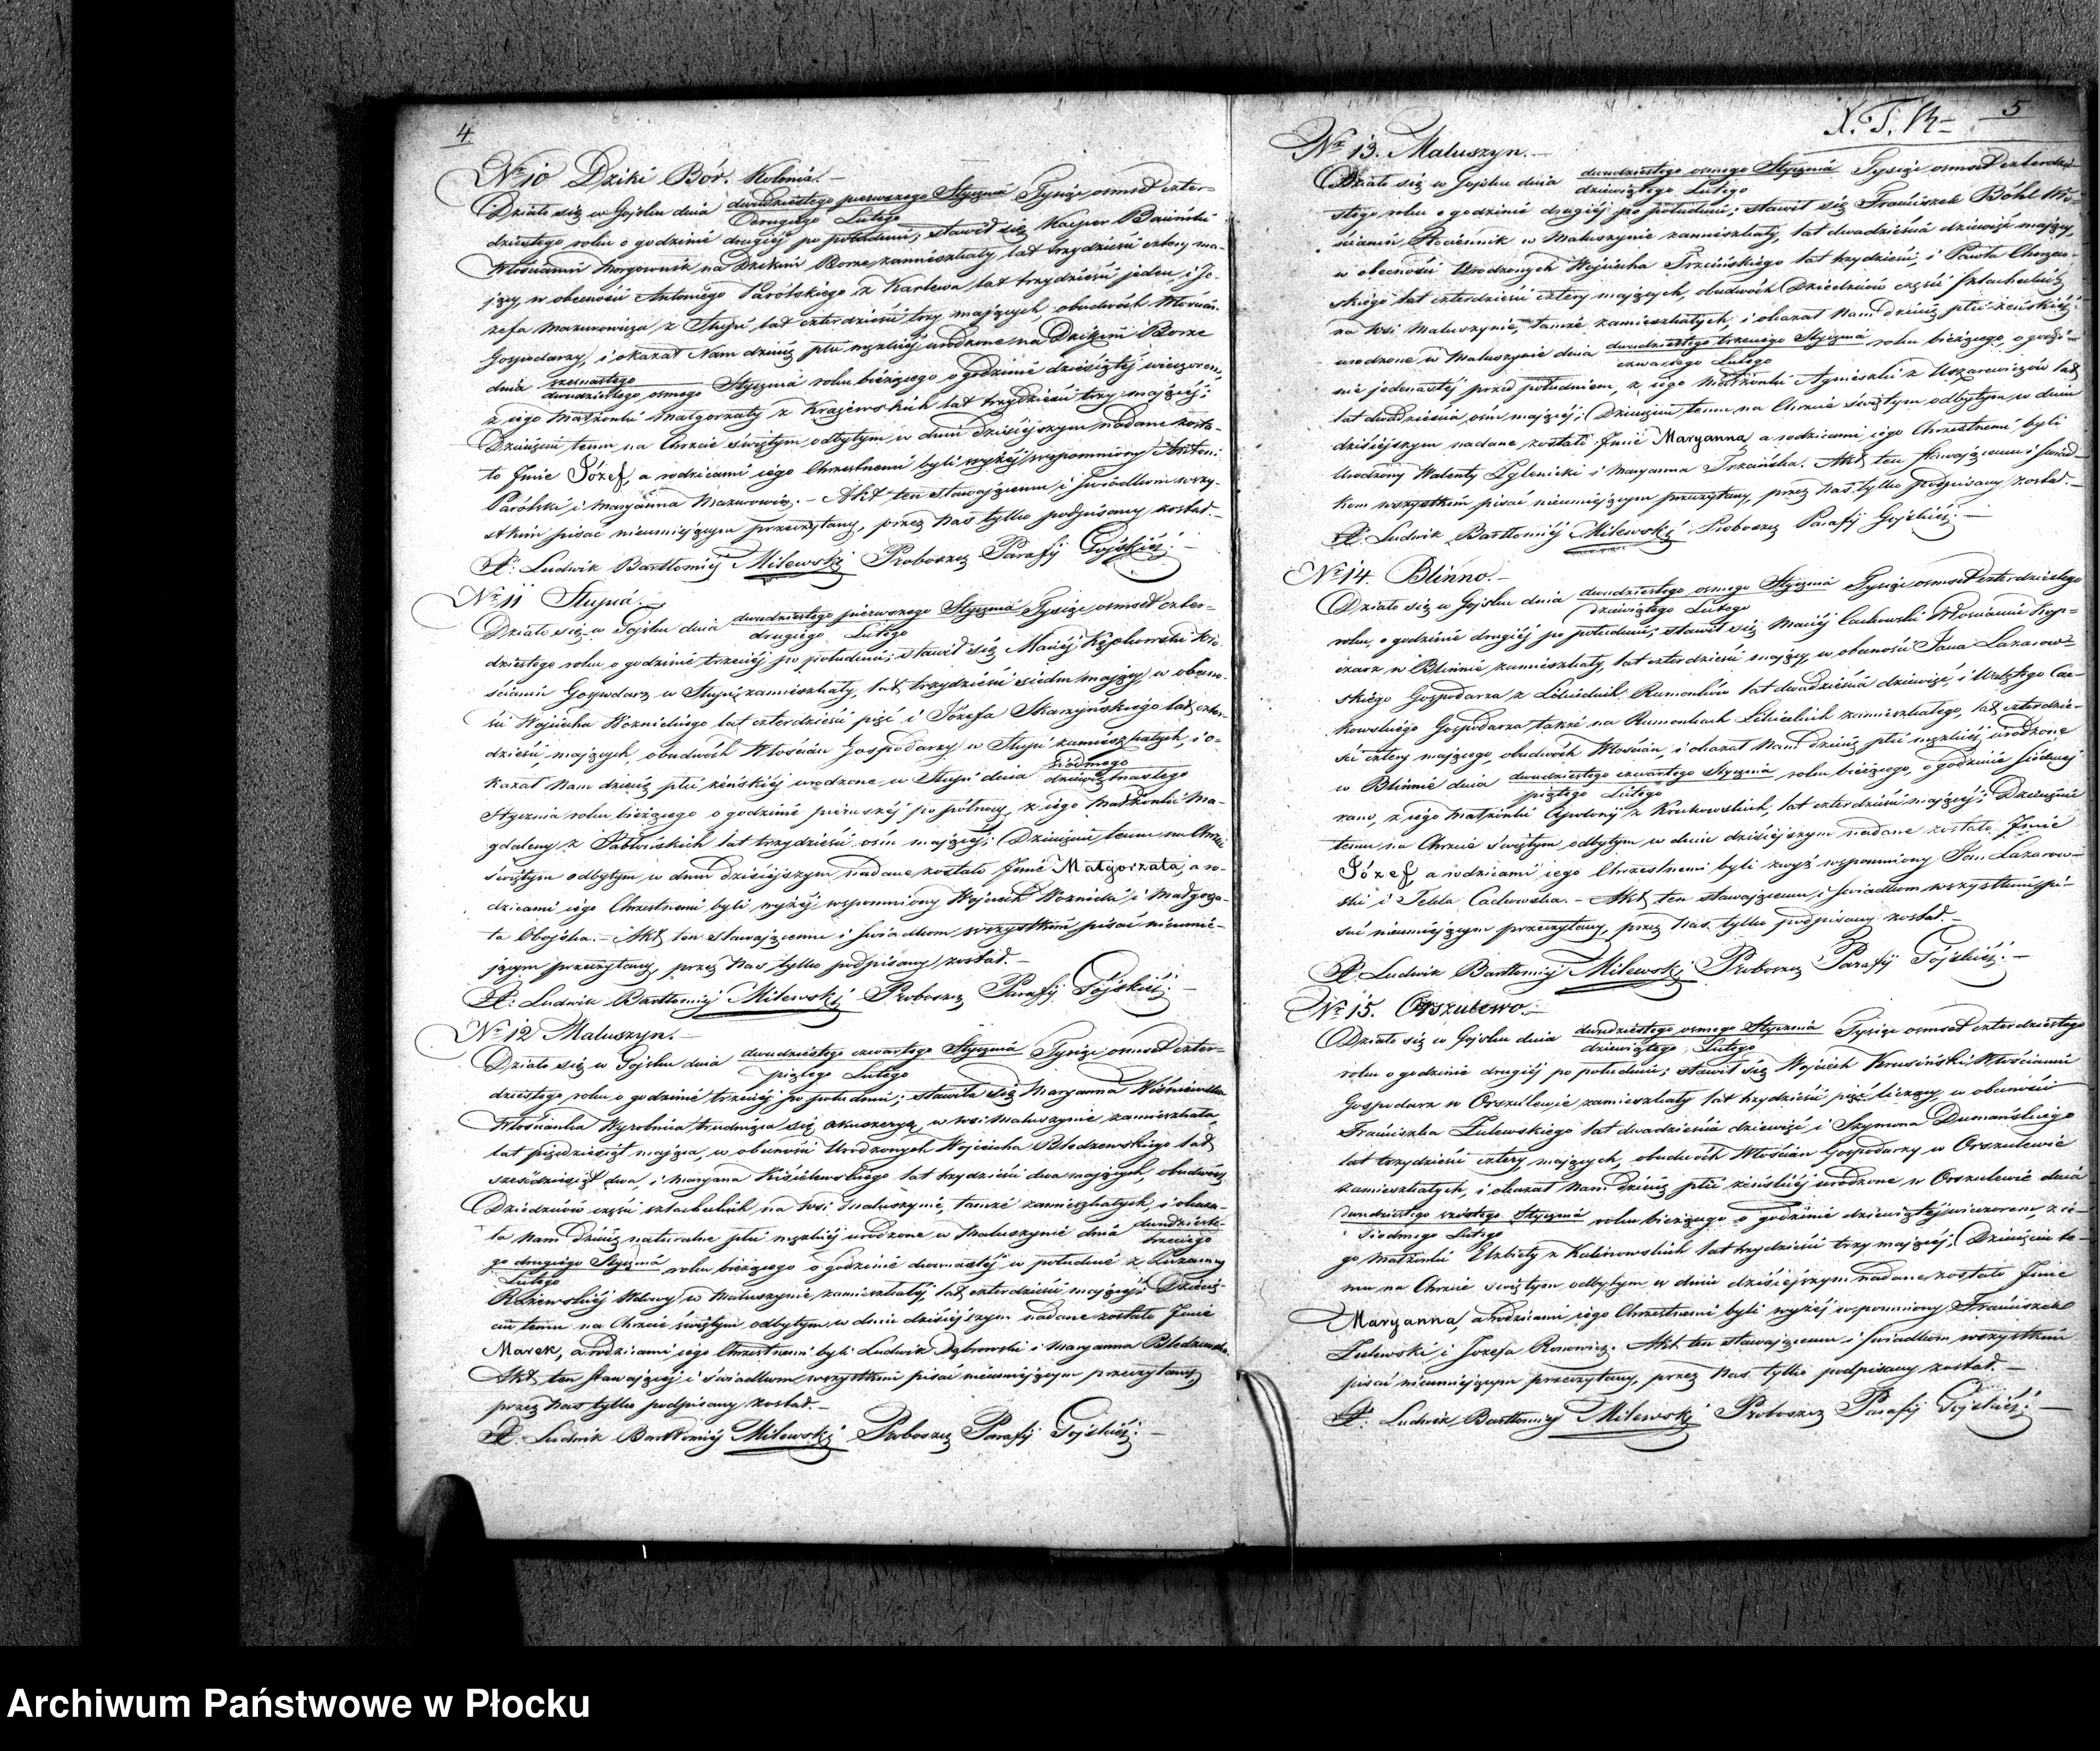 4
Nr 10 Dziki Bór. Kolonia.
Działo się w Gójsku dnia dwudziestego pierwszego Stycznia Tysiąc ośmset czter-
drugiego Lutego
dziestego roku o godzinie drugiéj po południu; stawił się Kacper
Włościanin na Dzikim Borze zamieszkały, lat trzydzieści cztery ma-
jący, w obecności Antoniego Parólskiego z Karlewa lat trzydzieści jeden, i Jó-
zefa Mazurowicza, z Stupi lat czterdzieści trzy mających, obudwóch Włościan
Gospodarzy, i okazał Nam dziecię płci męzkiéj urodzone na Dzikim Borze
dnia szesnastego Stycznia roku bieżącego o godzinie dziesiątéj wieczorem,
dwudziestego osmego
z iego Małżonki Małgorzaty z Krajewskich lat trzydzieści trzy maiącéj;
Dziecięciu temu na Chrzcie świętym odbytym w dniu dzisiéjszym nadane zosta-
ło Imie Józef, a rodzicami iego Chrzestnemi byli wyżéj wspomniony Antoni
Parólski i Maryanna Mazurowicz. Akt ten stawaiącemu i Swiadkom wszy-
stkim pisać nieumieiącym przeczytany, przez Nas tylko podpisany został.
X. Ludwik Bartłomiéj Milewski Proboszcz Parafij Gójskiéj.
Nr 11 Stupia.
Działo się w Gójsku dnia dwudziestego pierwszego Stycznia Tysiąc ośmset czter-
drugiego Lutego
dziestego roku o godzinie trzeciéj po południu; stawił się Maciéj Wło-
ścianin Gospodarz w Stupi zamieszkały, lat trzydzieści siedm mający, w obecno-
ści Wojciecha Woźnickiego lat czterdzieści pięć i Józefa Skarzyńskiego lat czter-
dzieści, mających, obudwóch Włościan Gospodarzy w Stupi zamieszkałych, i o-
kazał Nam dziecię płci zeńskiéj urodzone w Stupi dnia siódmego
dziewiętnastego
Stycznia roku bieżącego o godzinie pierwszéj po północy, z iego Małżonki Ma-
gdaleny z Jabłońskich lat trzydzieści ośm maiącéj; Dziecięciu temu na Chrzcie
świętym odbytym w dniu dzisiejszym nadane zostało Imie Małgorzata, a ro-
dzicami iego Chrzestnemi byli wyżéj wspomniony Wojciech Woźnicki i Małgorza-
ta Obojska. Akt ten stawaiącemu i Swiadkom wszystkim pisać nieumie-
jącym przeczytany, przez Nas tylko podpisany został.
X. Ludwik Bartłomiéj Milewski Proboszcz Parafij Gójskiéj.
Nr 12 Maluszyn.
Działo się w Gójsku dnia dwudziestego czwartego Stycznia Tysiąc ośmset czter-
piątego Lutego
dziestego roku o godzinie trzeciéj po południu; stawiła się Maryanna Wiśniewska
Włościanka Wyrobnica trudniąca się akuszeryą, w wsi Maluszynie zamieszkała
lat pięćdziesiąt maiąca, w obecności Urodzonych Wojciecha Błedzewskiego lat
sześćdziesiąt dwa, i Maryana Kisielewskiego lat trzydzieści dwa mających, obudwóch
Dziedziców części szlacheckich na wsi Maluszynie, tamże zamieszkałych i okaza-
ła Nam dziecię naturalne płci męzkiéj urodzone w Maluszynie dnia dwudzieste-
trzeciego
go drugiego Stycznia roku bieżącego o godzinie dwunastéj w południe z
Lutego
Wdowy w Maluszynie zamieszkałéj, lat czterdzieści maiącéj; Dziecię-
ciu temu na Chrzcie świętym odbytym w dniu dzisiéjszym nadane zostało Imie
Marek, a rodzicami iego Chrzestnemi byli Ludwik Dąbrowski i Maryanna Błedzewska.
Akt ten stawaiącéj i świadkom wszystkim pisać nieumiejącym przeczytany,
przez Nas tylko podpisany został.
X. Ludwik Bartłomiéj Milewski Proboszcz Parafij Gójskiéj.
5
Nr 13. Maluszyn.
Działo się w Gójsku dnia dwudziestego osmego Stycznia Tysiąc ośmset czterdzie-
dziewiątego Lutego
stego roku o godzinie drugiéj po południu; stawił się Franciszek Böhl Wło-
ścianin w Maluszynie zamieszkały, lat dwadzieścia dziewięć mający,
w obecności Urodzonych Wojciecha Trzcińskiego lat trzydzieści, i Pawła
skiego lat czterdzieści cztery mających, obudwóch Dziedziców części szlacheckich
na wsi Maluszynie, tamże zamieszkałych, i okazał Nam dziecię płci żeńskiéj
urodzone w Maluszynie dnia dwudziestego trzeciego Stycznia roku bieżącego, o godzi-
czwartego Lutego
nie jedenastéj przed południem, z iego Małżonki Agnieszki z lat
lat dwadzieścia ośm maiącéj; Dziecięciu temu na Chrzcie świętym odbytym w dniu
dzisiéjszym nadane zostało Imie Maryanna, a rodzicami iego Chrzestnemi byli
Urodzony Walenty Zglenicki i Maryanna Trzcińska. Akt ten stawaiącemu i swiad-
kom wszystkim pisać nieumiejącym przeczytany, przez Nas tylko podpisany został.
X. Ludwik Bartłomiéj Milewski Proboszcz Parafij Gójskiéj.
Nr 14. Blinno.
Działo się w Gójsku dnia dwudziestego osmego Stycznia Tysiąc ośmset czterdziestego
dziewiątego Lutego
roku, o godzinie drugiéj po południu; stawił się Maciéj Cackowski Włościanin
w Blinnie zamieszkały, lat czterdzieści mający, w obecności Jana Lazarow-
skiego Gospodarza z Rumonków lat dwadzieścia dziewięć, i Walętego Cac-
kowskiego Gospodarza także na Rumonkach zamieszkałego, lat czterdzie-
ści cztery mającego, obudwóch Włościan, i okazał Nam dziecię płci męzkiéj urodzone
w Blinnie dnia dwudziestego czwartego Stycznia roku bieżącego, o godzinie siódméj
piątego Lutego
rano, z iego Małżonki Apolonij z Krukowskich, lat czterdzieści maiącéj; Dziecięciu
temu na Chrzcie świętym odbytym w dniu dzisiéjszym nadane zostało Imie
Józef a rodzicami iego Chrzestnemi byli wspomniony Jan Lazarow-
ski i Tekla Cackowska. Akt ten stawaiącemu i swiadkom wszystkim pi-
sać nieumiejącym przeczytany, przez Nas tylko podpisany został.
X. Ludwik Bartłomiéj Milewski Proboszcz Parafij Gójskiéj.
Nr 15. Orszulewo.
Działo się w Gójsku dnia dwudziestego osmego Stycznia Tysiąc ośmset czterdziestego
dziewiątego Lutego
roku o godzinie drugiéj po południu; stawił się Wojciech Włościanin
Gospodarz w Orszulewie zamieszkały lat trzydzieści pięć liczący, w obecności
Franciszka Zulewskiego lat dwadzieścia dziewięć i Szymona Dumańskiego
lat trzydzieści cztery, mających, obudwóch Włościan Gospodarzy w Orszulewie
zamieszkałych, i okazał Nam dziecię płci zeńskiéj urodzone w Orszulewie dnia
dwudziestego szóstego Stycznia roku bieżącego o godzinie dziewiątéj wieczorem, z ie-
siodmego Lutego
go Małżonki Elzbiety z Kalinowskich lat trzydzieści trzy maiącéj; Dziecięciu te-
mu na Chrzcie świętym odbytym w dniu dzisiéjszym nadane zostało Imie
Maryanna, a rodzicami iego Chrzestnemi byli wyżéj wspomniony Franciszek
Zulewski i Jozefa. Akt ten stawaiącemu i swiadkom wszystkim
pisać nieumiejącym przeczytany, przez Nas tylko podpisany został.
X. Ludwik Bartłomiéj Milewski Proboszcz Parafij Gójskiéj.
Archiwum Państwowe w Płocku